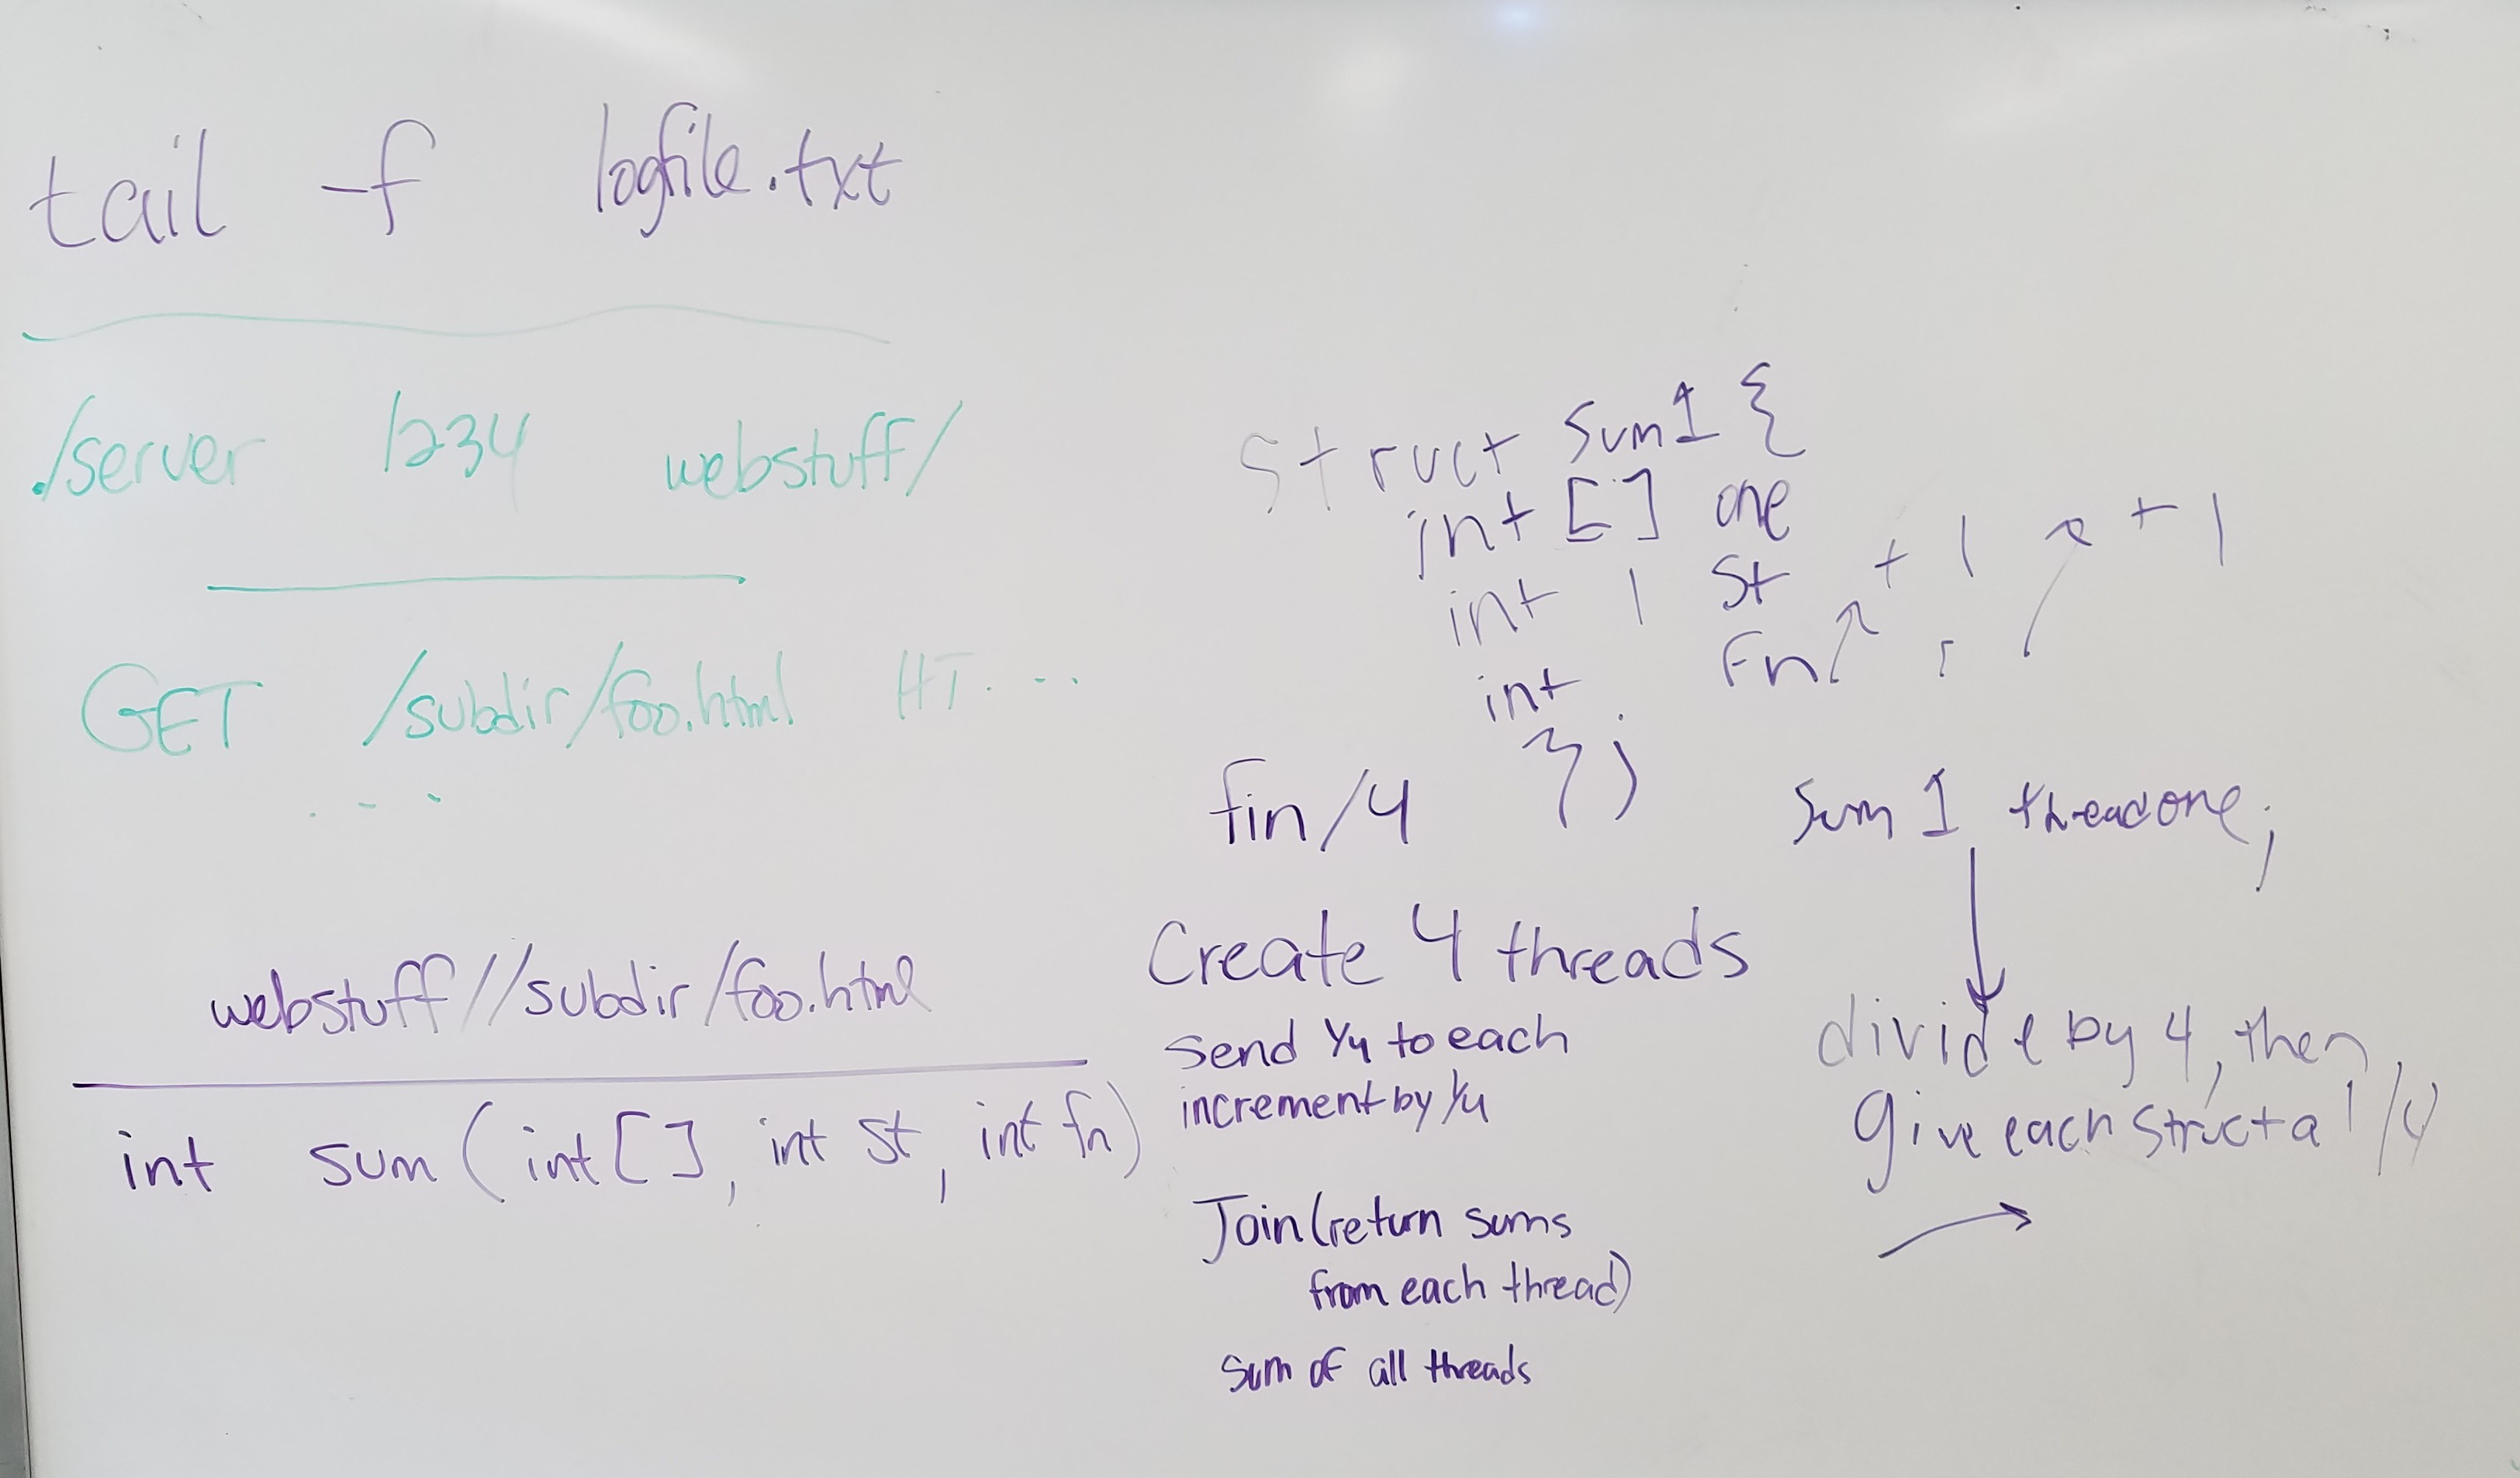 tail -f logfile.txt
./server 1234 webstuff/
GET /subdir/foo.html HT. ..
. - -
webstuff//subdir/foo.html
int sum(int[], int st, int fn)
struct sum1 {
int [] one
int 1 st + 1 + 1
int Fn
};
fin/4
sum 1 threadone;
Create 4 threads
Send 1/4 to each
increment by 1/4
Join (return sums
from each thread)
sum of all threads
divide by 4, then
give each struct a 1/4